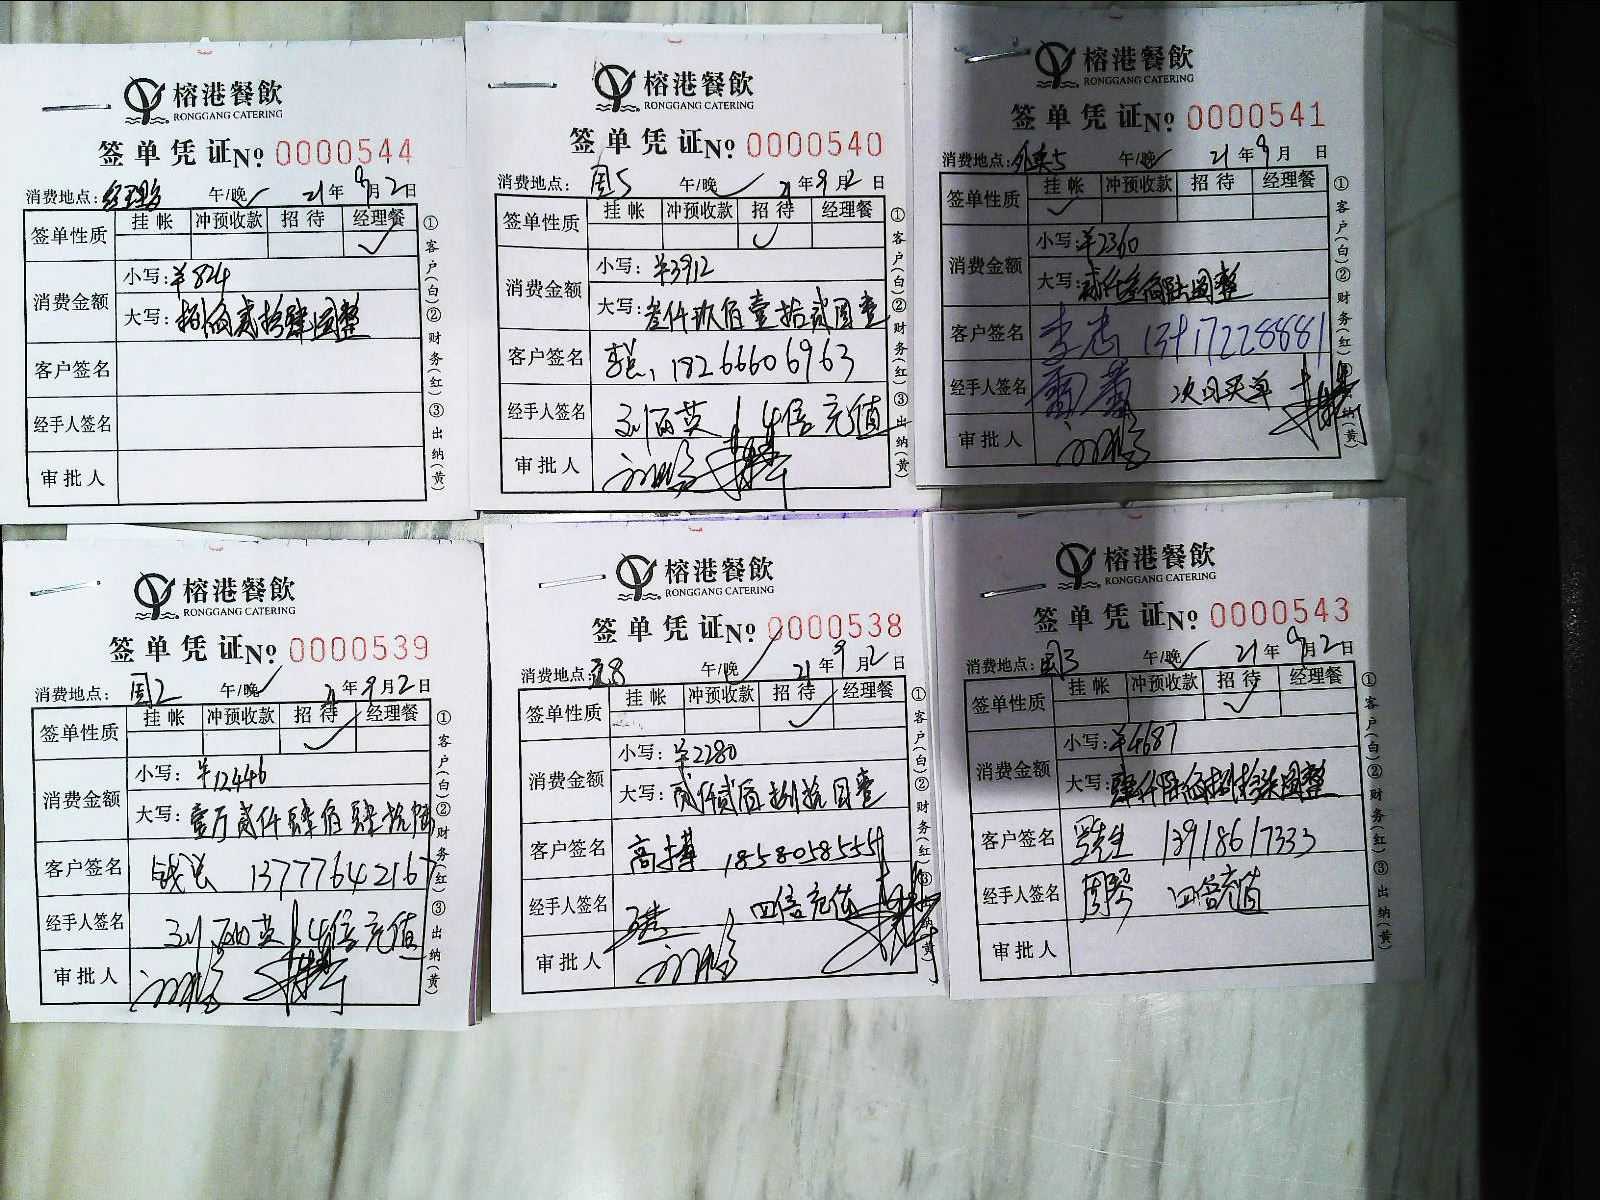 榕港餐飲
RONGGANG CATERING
签单凭证№ 0000544
消费地点: 午/晚✓ 21年9月2日
签单性质 挂帐 冲预收款 招待 经理餐
✓
消费金额 小写:¥824
大写: 捌佰贰拾肆圆整
客户签名
经手人签名
审批人
①客户(白)②财务(红)③出纳(黄)
榕港餐飲
RONGGANG CATERING
签单凭证№ 0000540
消费地点: 周5 午/晚✓ 21年9月2日
签单性质 挂帐 冲预收款 招待 经理餐
✓
消费金额 小写: ¥3912
大写: 叁仟玖佰壹拾贰圆整
客户签名 18266606963
经手人签名 4倍充值
审批人
①客户(白)②财务(红)③出纳(黄)
榕港餐飲
RONGGANG CATERING
签单凭证№ 0000541
消费地点: 午/晚✓ 21年9月 日
签单性质 挂帐 冲预收款 招待 经理餐
✓
消费金额 小写:¥2360
大写: 贰仟叁佰陆圆整
客户签名
经手人签名 次日买单
审批人
①客户(白)②财务(红) 纳(黄)
榕港餐飲
RONGGANG CATERING
签单凭证№ 0000539
消费地点: 周2 午/晚✓ 21年9月2日
签单性质 挂帐 冲预收款 招待 经理餐
✓
消费金额 小写: ¥12446
大写: 壹万贰仟肆佰肆拾陆
客户签名 13777642167
经手人签名 4倍充值
审批人
①客户(白)②财务(红)③出纳(黄)
榕港餐飲
RONGGANG CATERING
签单凭证№ 0000538
消费地点: 午/晚✓ 21年9月2日
签单性质 挂帐 冲预收款 招待 经理餐
✓
消费金额 小写: ¥2280
大写: 贰仟贰佰捌拾圆整
客户签名
经手人签名 四倍充值
审批人
①客户(白)②财务(红)③
榕港餐飲
RONGGANG CATERING
签单凭证№ 0000543
消费地点: 周3 午/晚✓ 21年9月2日
签单性质 挂帐 冲预收款 招待 经理餐
✓
消费金额 小写:¥4687
大写: 肆仟陆佰捌拾柒圆整
客户签名 13918617333
经手人签名 周琴 四倍充值
审批人
①客户(白)②财务(红)③出纳(黄)